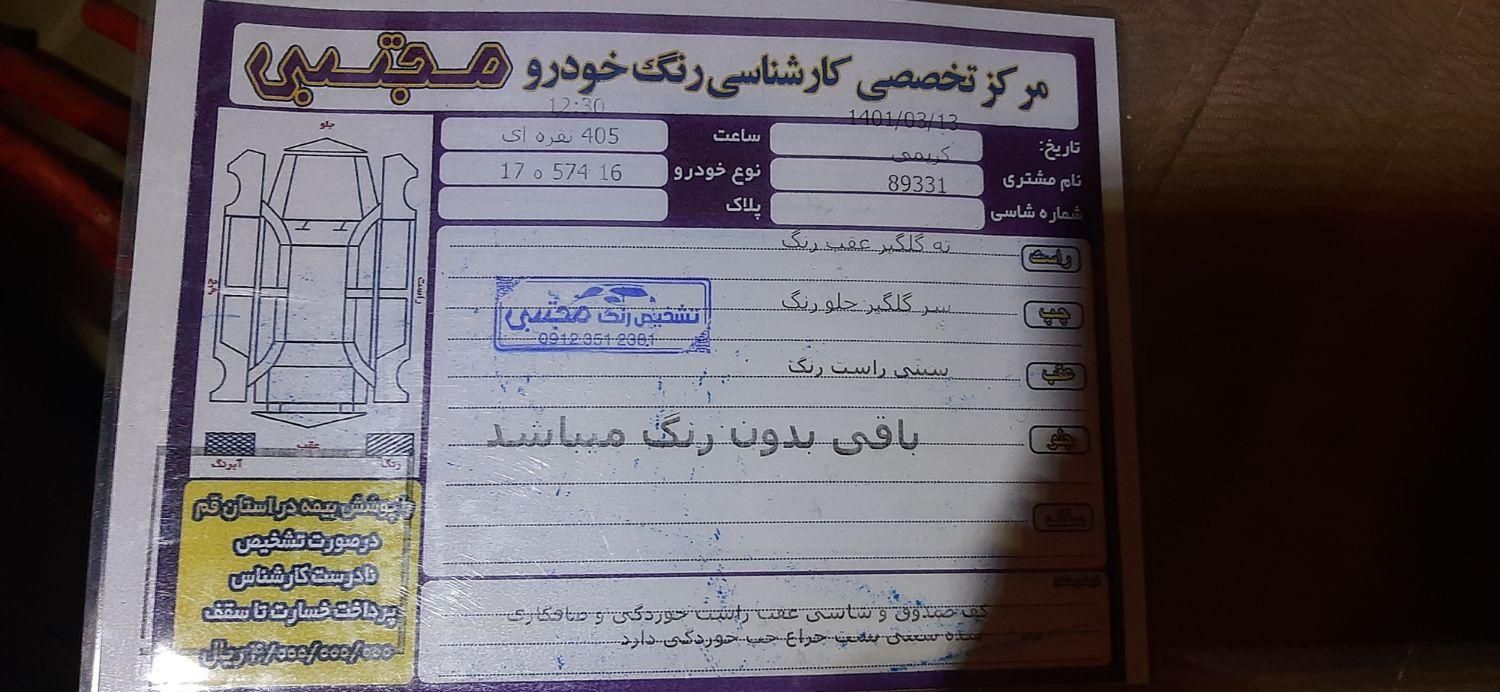 مرکز تخصصی کارشناسی رنگ خودرو مجتبی
تاریخ: 1401/03/13
ساعت 12:30
نام مشتری کریمی
نوع خودرو 405 نقره ای
شماره شاسی 89331
پلاک 17 ه 574 16
جلو
راست
چپ
عقب
رنگ
آبرنگ
راست ته گلگیر عقب رنگ
چپ سر گلگیر جلو رنگ
تشخیص رنگ مجتبی
0912 351 2381
عقب سینی راست رنگ
جلو باقی بدون رنگ میباشد
سقف
با پوشش بیمه در استان قم
درصورت تشخیص
نادرست کارشناس
پرداخت خسارت تا سقف
ریال
توضیحات:
کف صندوق و شاسی عقب راست خوردگی و صافکاری
شده سینی پشت چراغ چپ خوردگی دارد